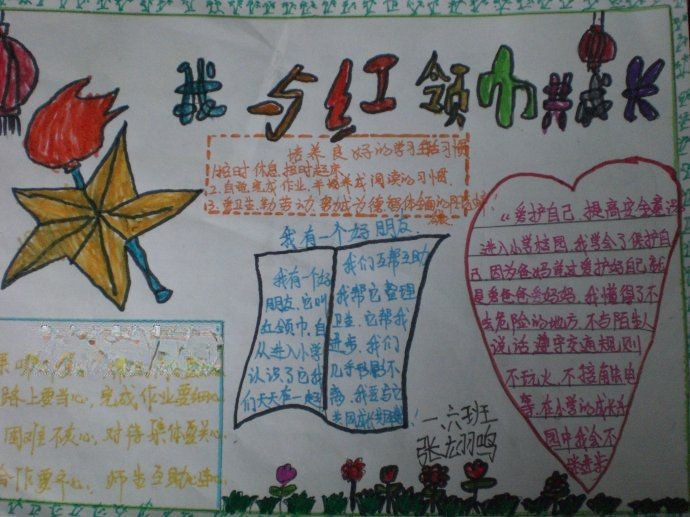 我与红领巾共成长
培养良好的学习生活习惯
1.按时休息,按时起床
2.自觉完成作业,并培养成阅读的习惯.
3.爱卫生,勤劳动,要成为德智体全面的
我有一个好朋友
我有一个好
朋友,它叫
红领巾,自
从进入小学
认识了它我
们天天在一起
我们互帮互助
我帮它整理
卫生,它帮我
进步,我们
几乎形影不
离,我要与它
共同成长
《爱护自己,提高安全意识
进入小学校园,我学会了保护自
己,因为爸妈说过爱护好自己就
是爱爸爸爱妈妈,我懂得了不
去危险的地方,不与陌生人
说话,遵守交通规则
不玩火,不接触电
等,在小学的成长乐
园中我会不
断进步
路上要当心,完成作业要细心
困难不灰心,对待集体要关心
合作要齐心,师生互助心连心
一六班
张栩鸣